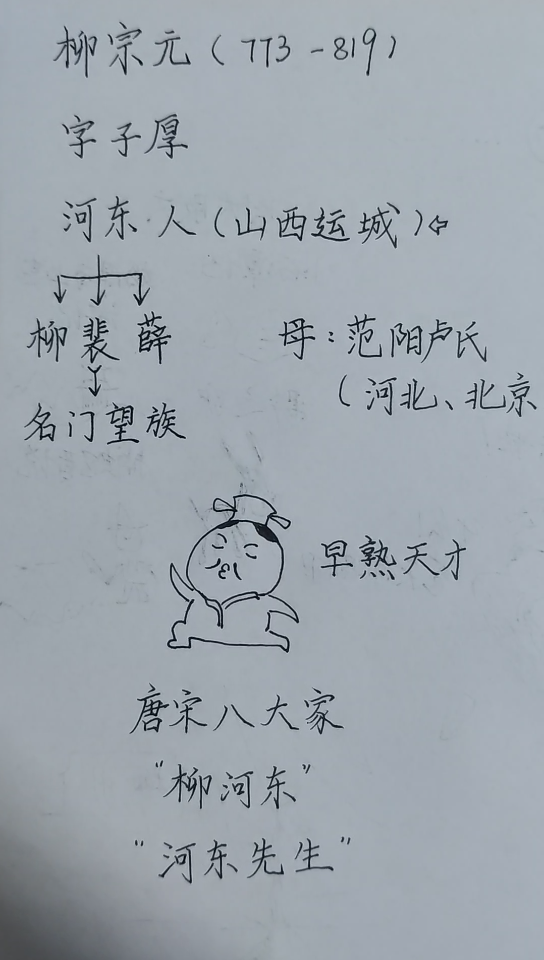 柳宗元(773-819)
字子厚
河东人(山西运城)
柳 裴 薛
母:范阳卢氏
(河北、北京
名门望族
早熟天才
唐宋八大家
"柳河东"
"河东先生"